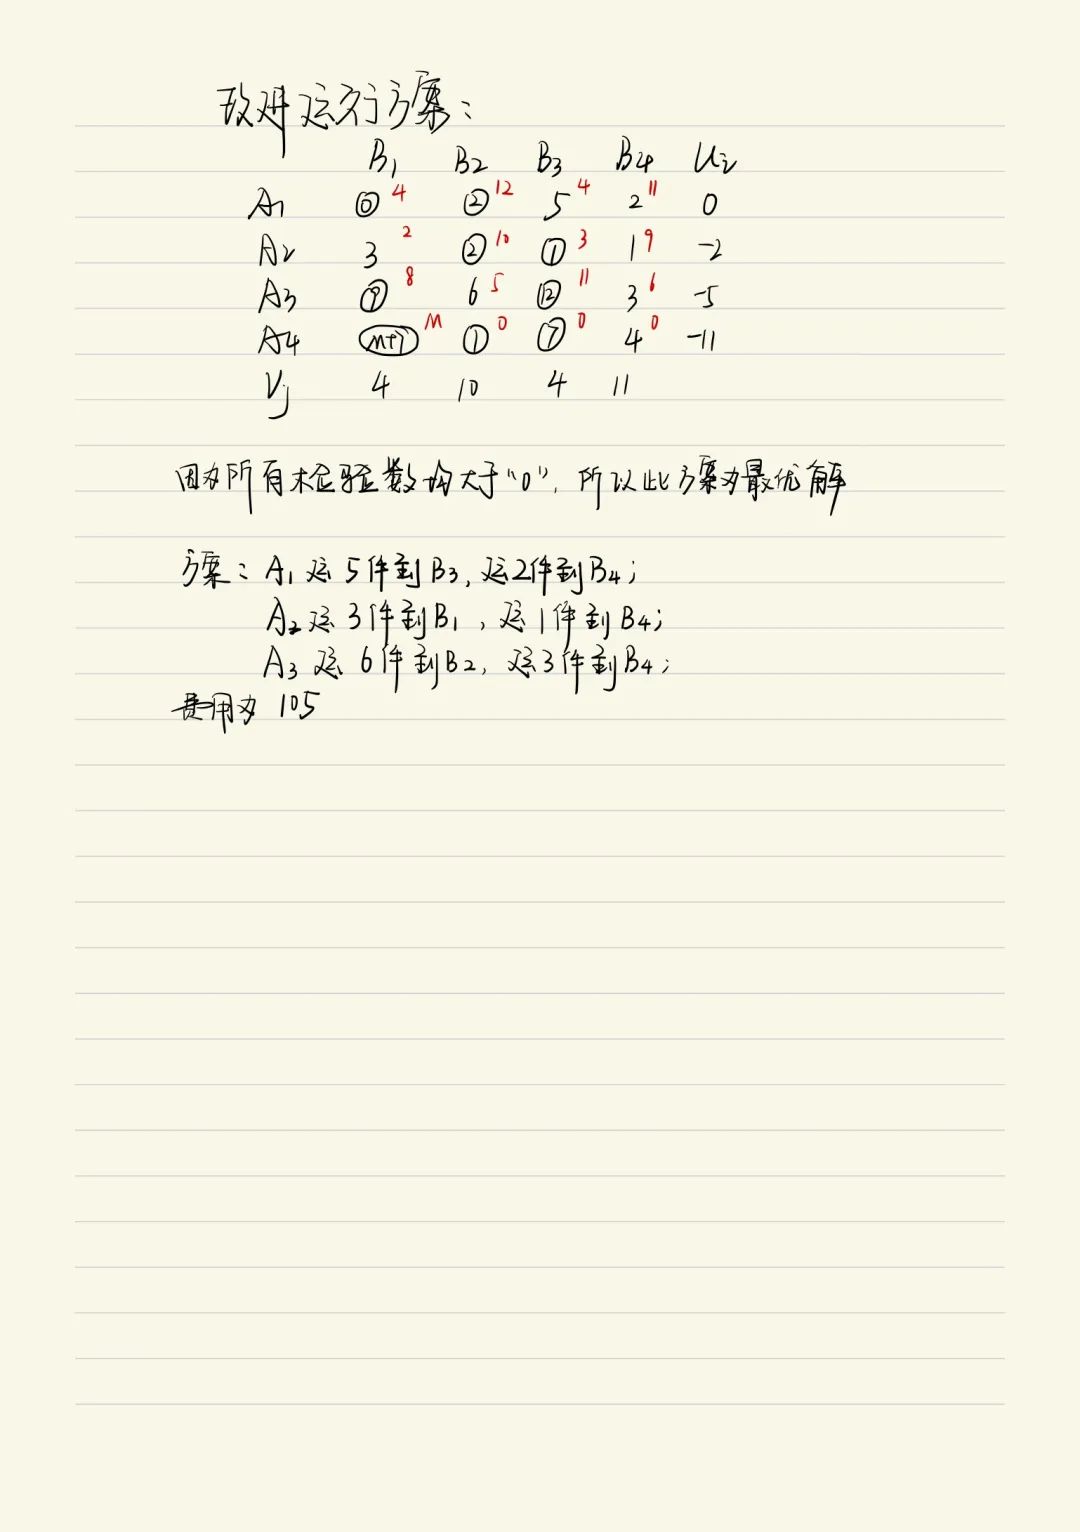 改进运行方案：
B1 B2 B3 B4 Ui
A1 ⓪ 4 ② 12 5 4 2 11 0
A2 3 2 ② 10 ① 3 1 9 -2
A3 ⑨ 8 6 5 ⑫ 11 3 6 -5
A4 M+7 M ① 0 ⑦ 0 4 0 -11
Vj 4 10 4 11
因为所有检验数均大于“0”，所以此方案为最优解
方案：A1运5件到B3，运2件到B4；
A2运3件到B1，运1件到B4；
A3运6件到B2，运3件到B4；
费用为 105